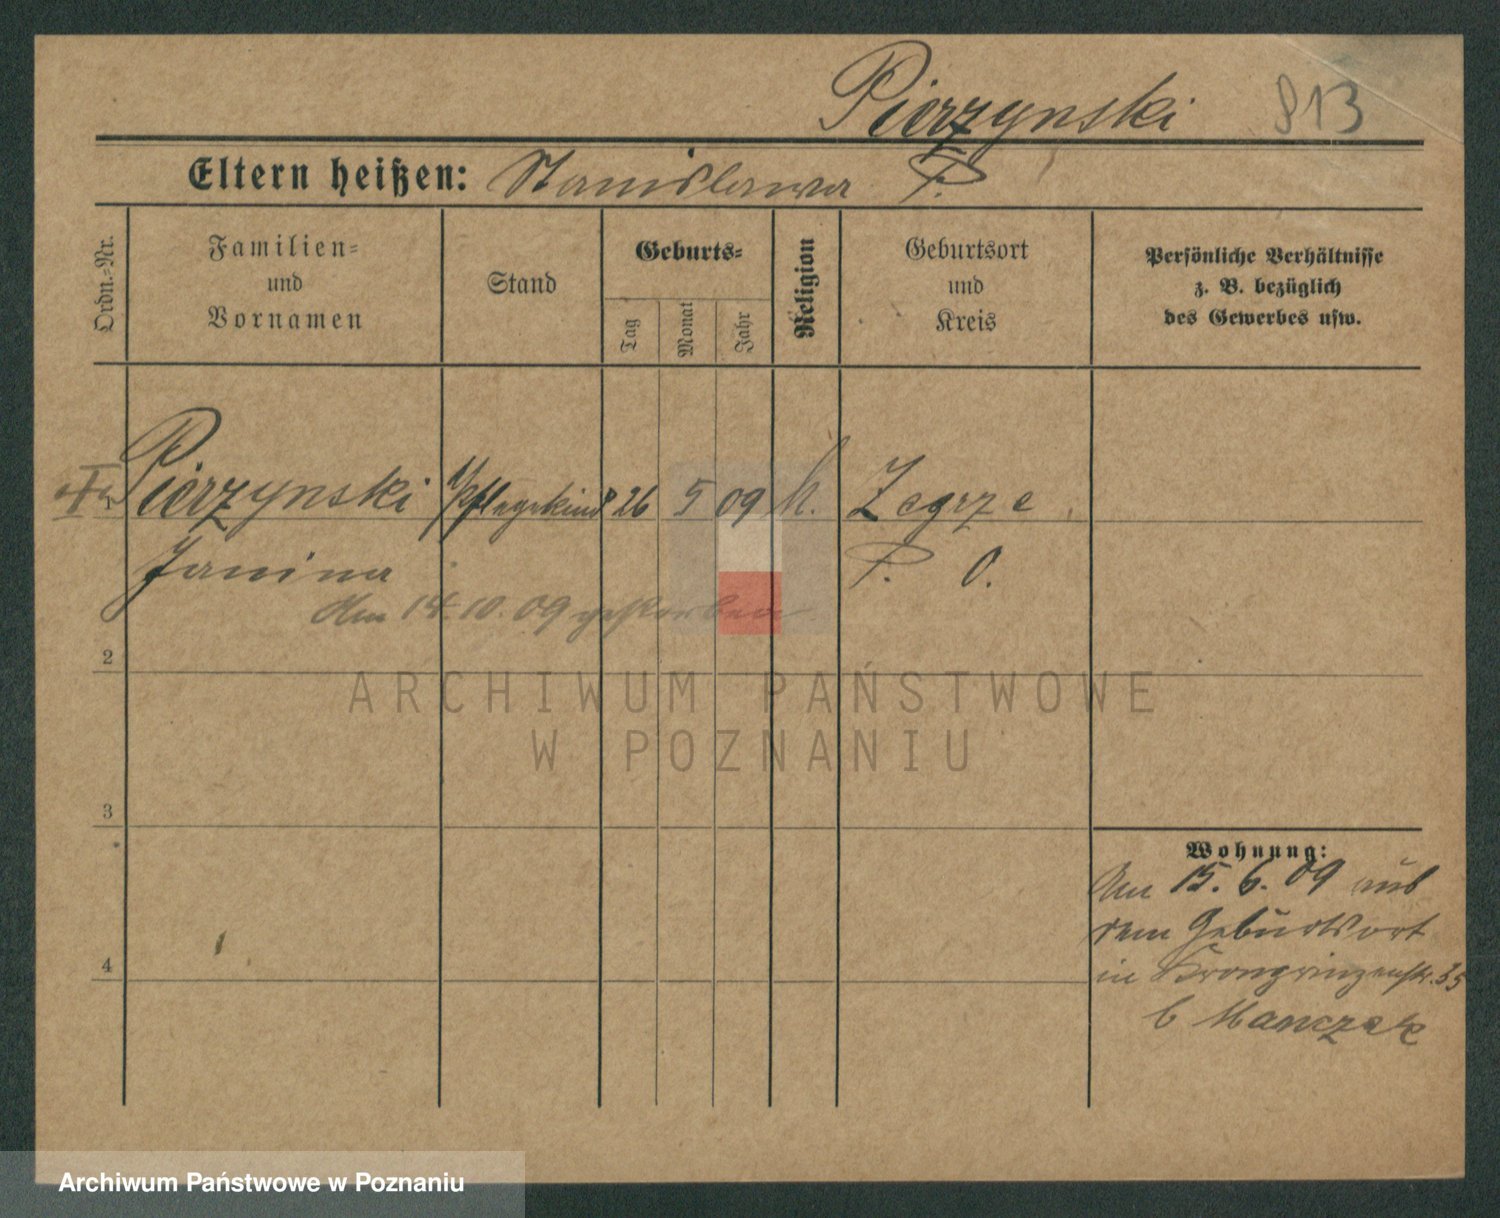 Pierzynski 813
Eltern heißen: Stanislawa P.
Ordn.-Nr.
Familien-
und
Vornamen
Stand
Geburts-
Tag
Monat
Jahr
Religion
Geburtsort
und
Kreis
Persönliche Verhältnisse
z. B. bezüglich
des Gewerbes usw.
Pierzynski Pflegekind 26 5 09 k. Zegrze
Janina P. O.
Am 14.10.09 gestorben
2
ARCHIWUM PAŃSTWOWE
W POZNANIU
3
Wohnung:
Am 15.6.09 aus
dem Geburtsort
4
in Kronprinzenstr. 35
b Manczak
Archiwum Państwowe w Poznaniu